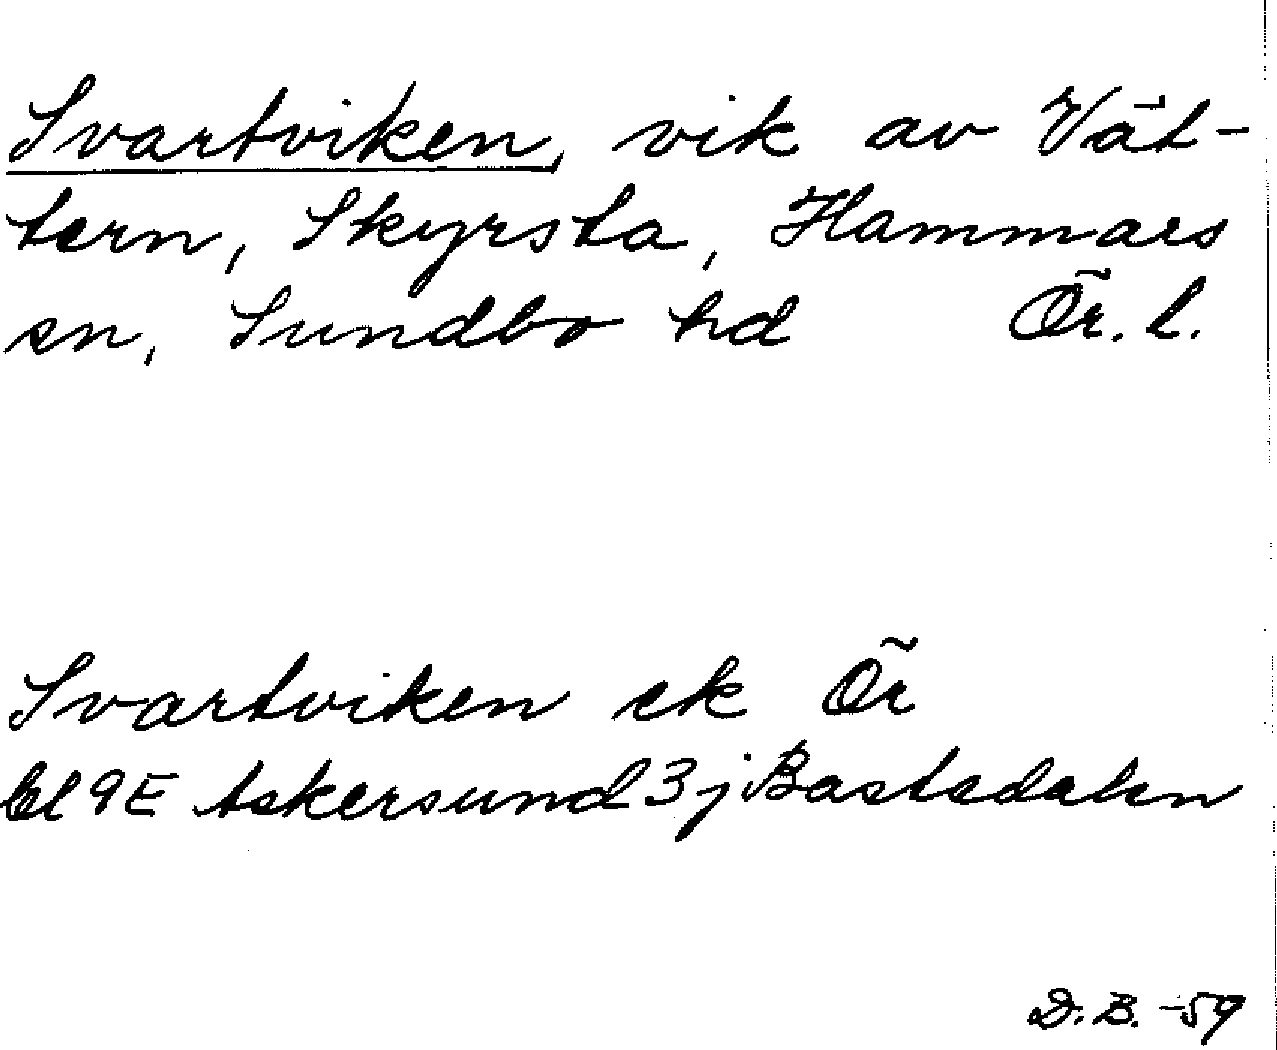 Svartviken, vik av Vät-
tern, Skyrsta, Hammars
sn, Sundbo hd Ör. l.
Svartviken ek Ör
9E Askersund 3j Bastedalen
D. B. -59